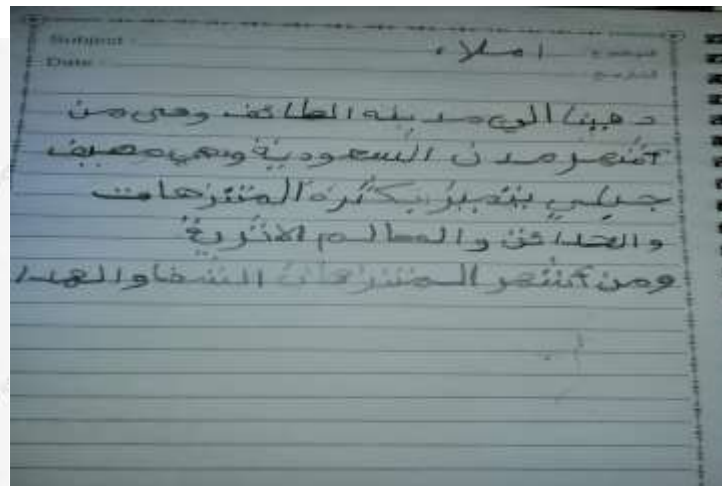 Subject : املاء الموضوع :
Date : التاريخ :
دهبنا الى مدينه الطائف وهى من
أشهر مدن السعودية وهي مصيف
جبلي يتميز بكثرة المنتزهات
والحدائق والمعالم الاثرية
ومن أشهر المنتزهات الشفا والهدا